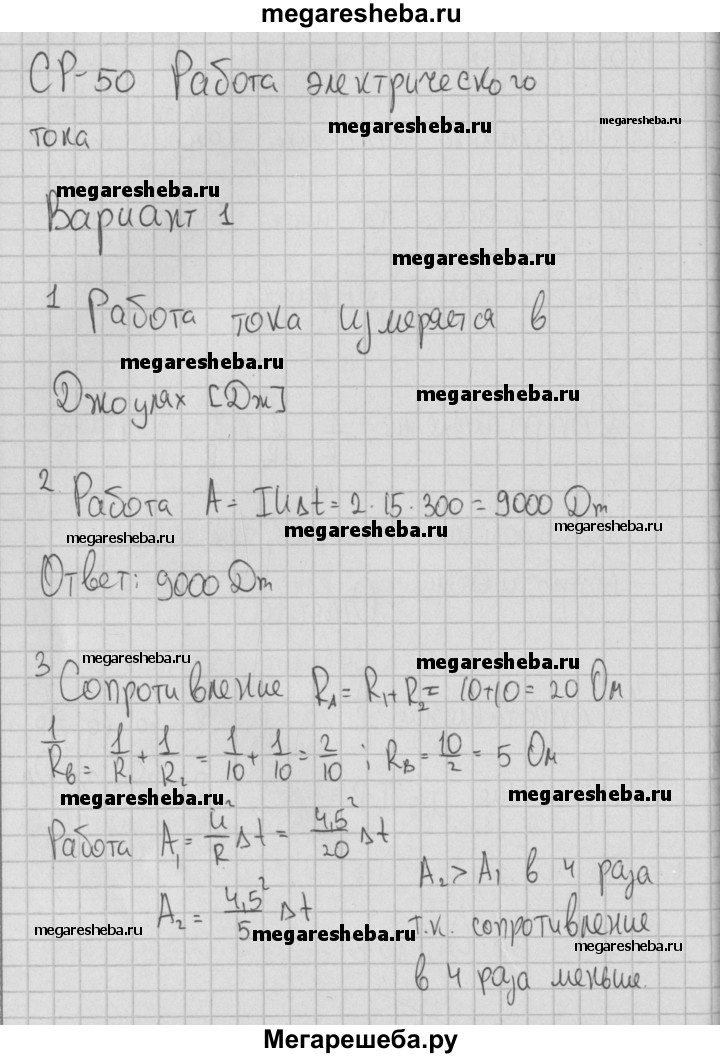 megaresheba.ru
СР-50 Работа электрического
megaresheba.ru megaresheba.ru
тока
megaresheba.ru
Вариант 1
megaresheba.ru
1 Работа тока измеряется в
megaresheba.ru
Джоулях [Дж]
megaresheba.ru
2 Работа A = IUΔt = 2·15·300 = 9000 Дж
megaresheba.ru megaresheba.ru megaresheba.ru
Ответ: 9000 Дж
megaresheba.ru megaresheba.ru
3 Сопротивление R_A = R₁ + R₂ = 10+10 = 20 Ом
1/R_B = 1/R₁ + 1/R₂ = 1/10 + 1/10 = 2/10 ; R_B = 10/2 = 5 Ом
megaresheba.ru megaresheba.ru
Работа A₁ = U²/R Δt = 4,5²/20 Δt
A₂ = 4,5²/5 Δt
A₂ > A₁ в 4 раза
т.к. сопротивление
в 4 раза меньше.
megaresheba.ru megaresheba.ru megaresheba.ru
Мегарешеба.ру